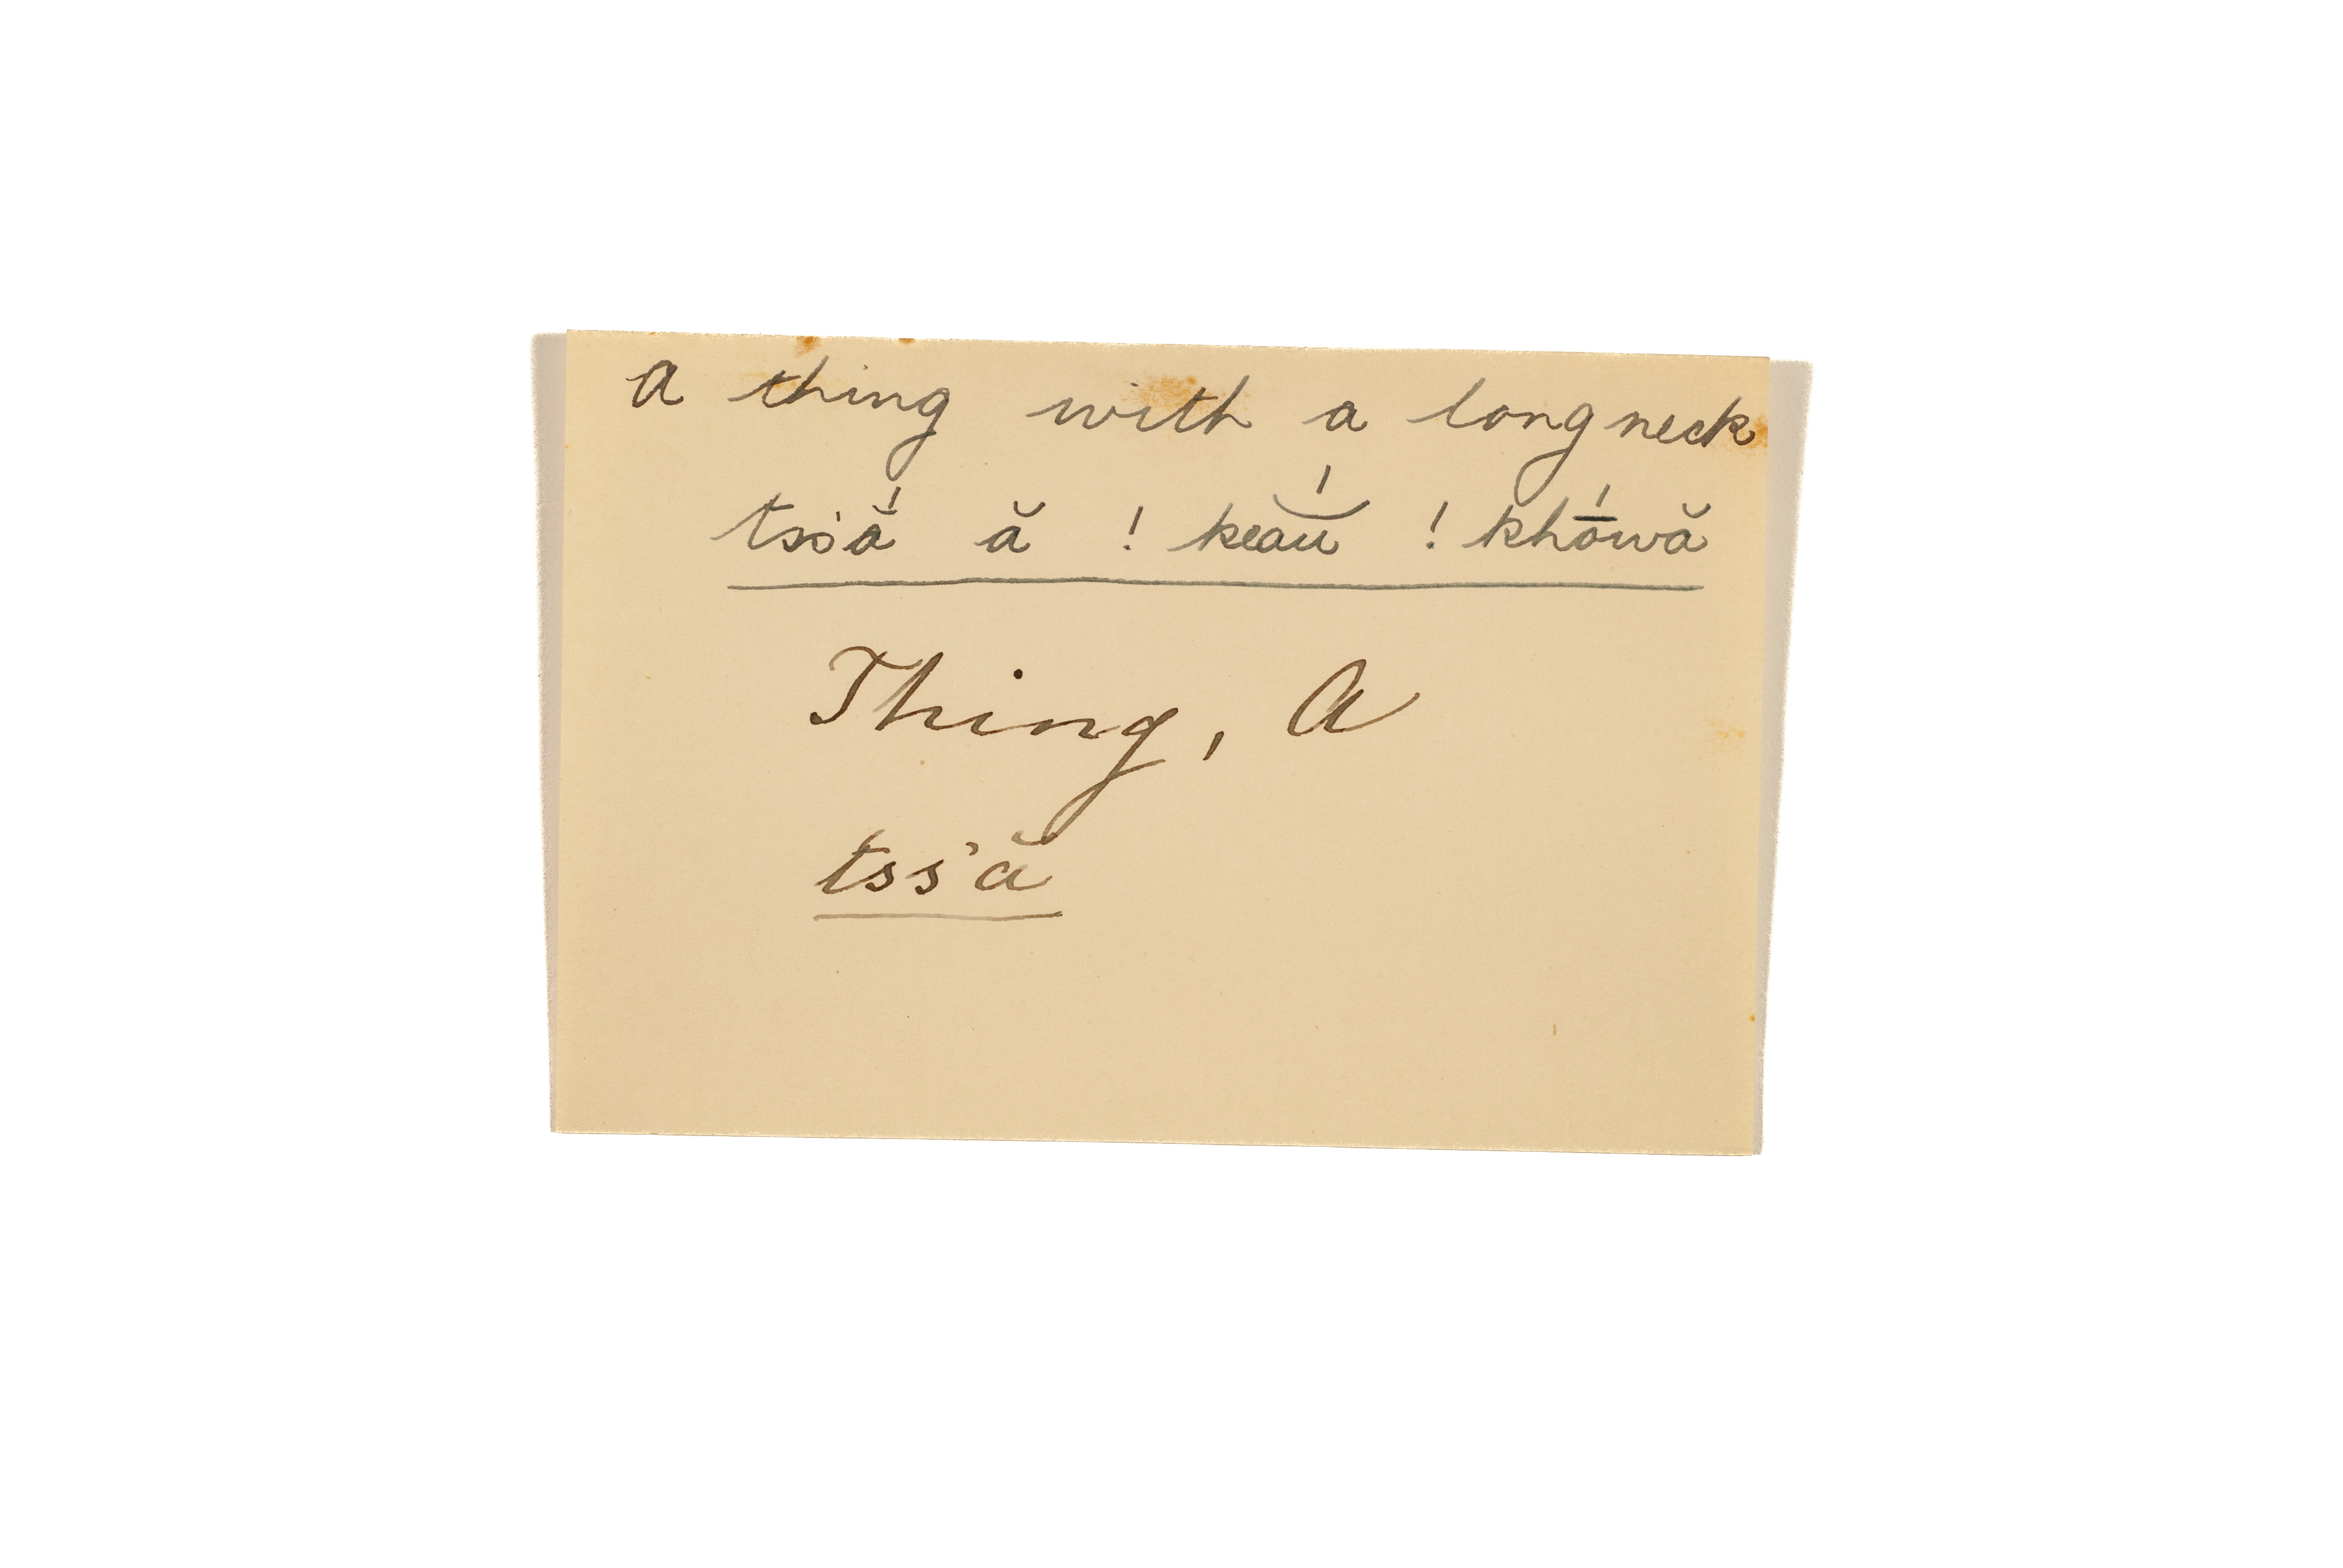 A thing with a long neck
tss'ắ ă ! keaú ! khṓwă
Thing, A
tss'ă